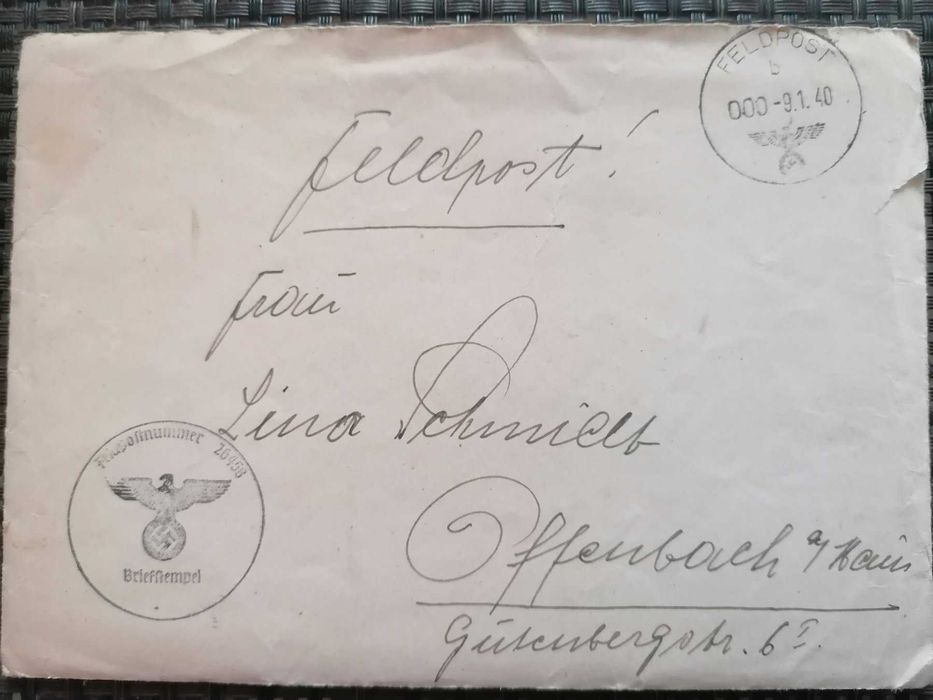 FELDPOST
b
000 -9.1.40
Feldpost!
Frau
Lina Schmidt
Offenbach a/Main
Gutenbergstr. 6 I.
Feldpostnummer 26458
Briefstempel